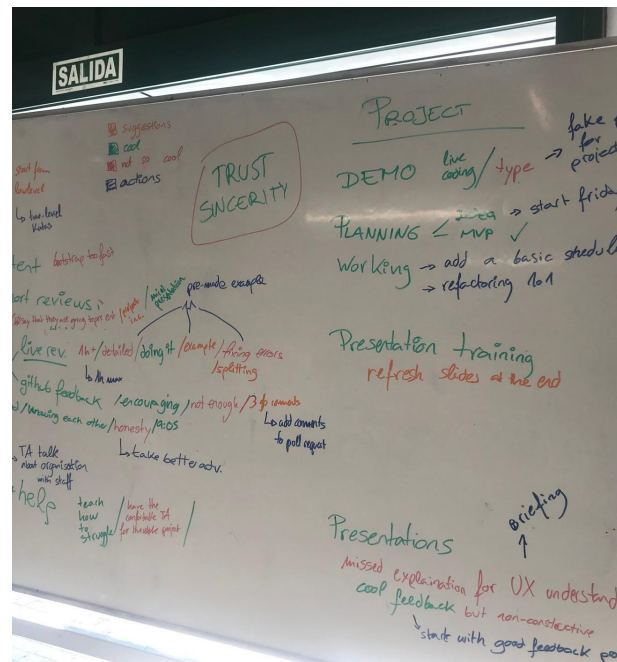 SALIDA
suggestions
cool
not so cool
actions
start from
low level
↳ two-level
Katas
TRUST
SINCERITY
bootstrap too fast
reviews:
mini presentation
pre-made example
live rev. 1h+/detailed/doing it/example/fixing errors
/splitting
↳ 1h max
github feedback /encouraging/not enough/3 comments
/knowing each other/honesty/9:05
↳ add comments
to pull request
→ TA talk
about organisation
with staff
↳ take better adv.
help
teach
how
to
struggle/
have the
comfortable TA
for the whole project/
PROJECT
DEMO live coding/type → fake
for
project
PLANNING < idea → start friday
MVP ✓
Working → add a basic schedul
→ refactoring 101
Presentation training
refresh slides at the end
Briefing
↑
Presentations
missed explaination for UX understand
cool feedback but non-constructive
↳ start with good feedback